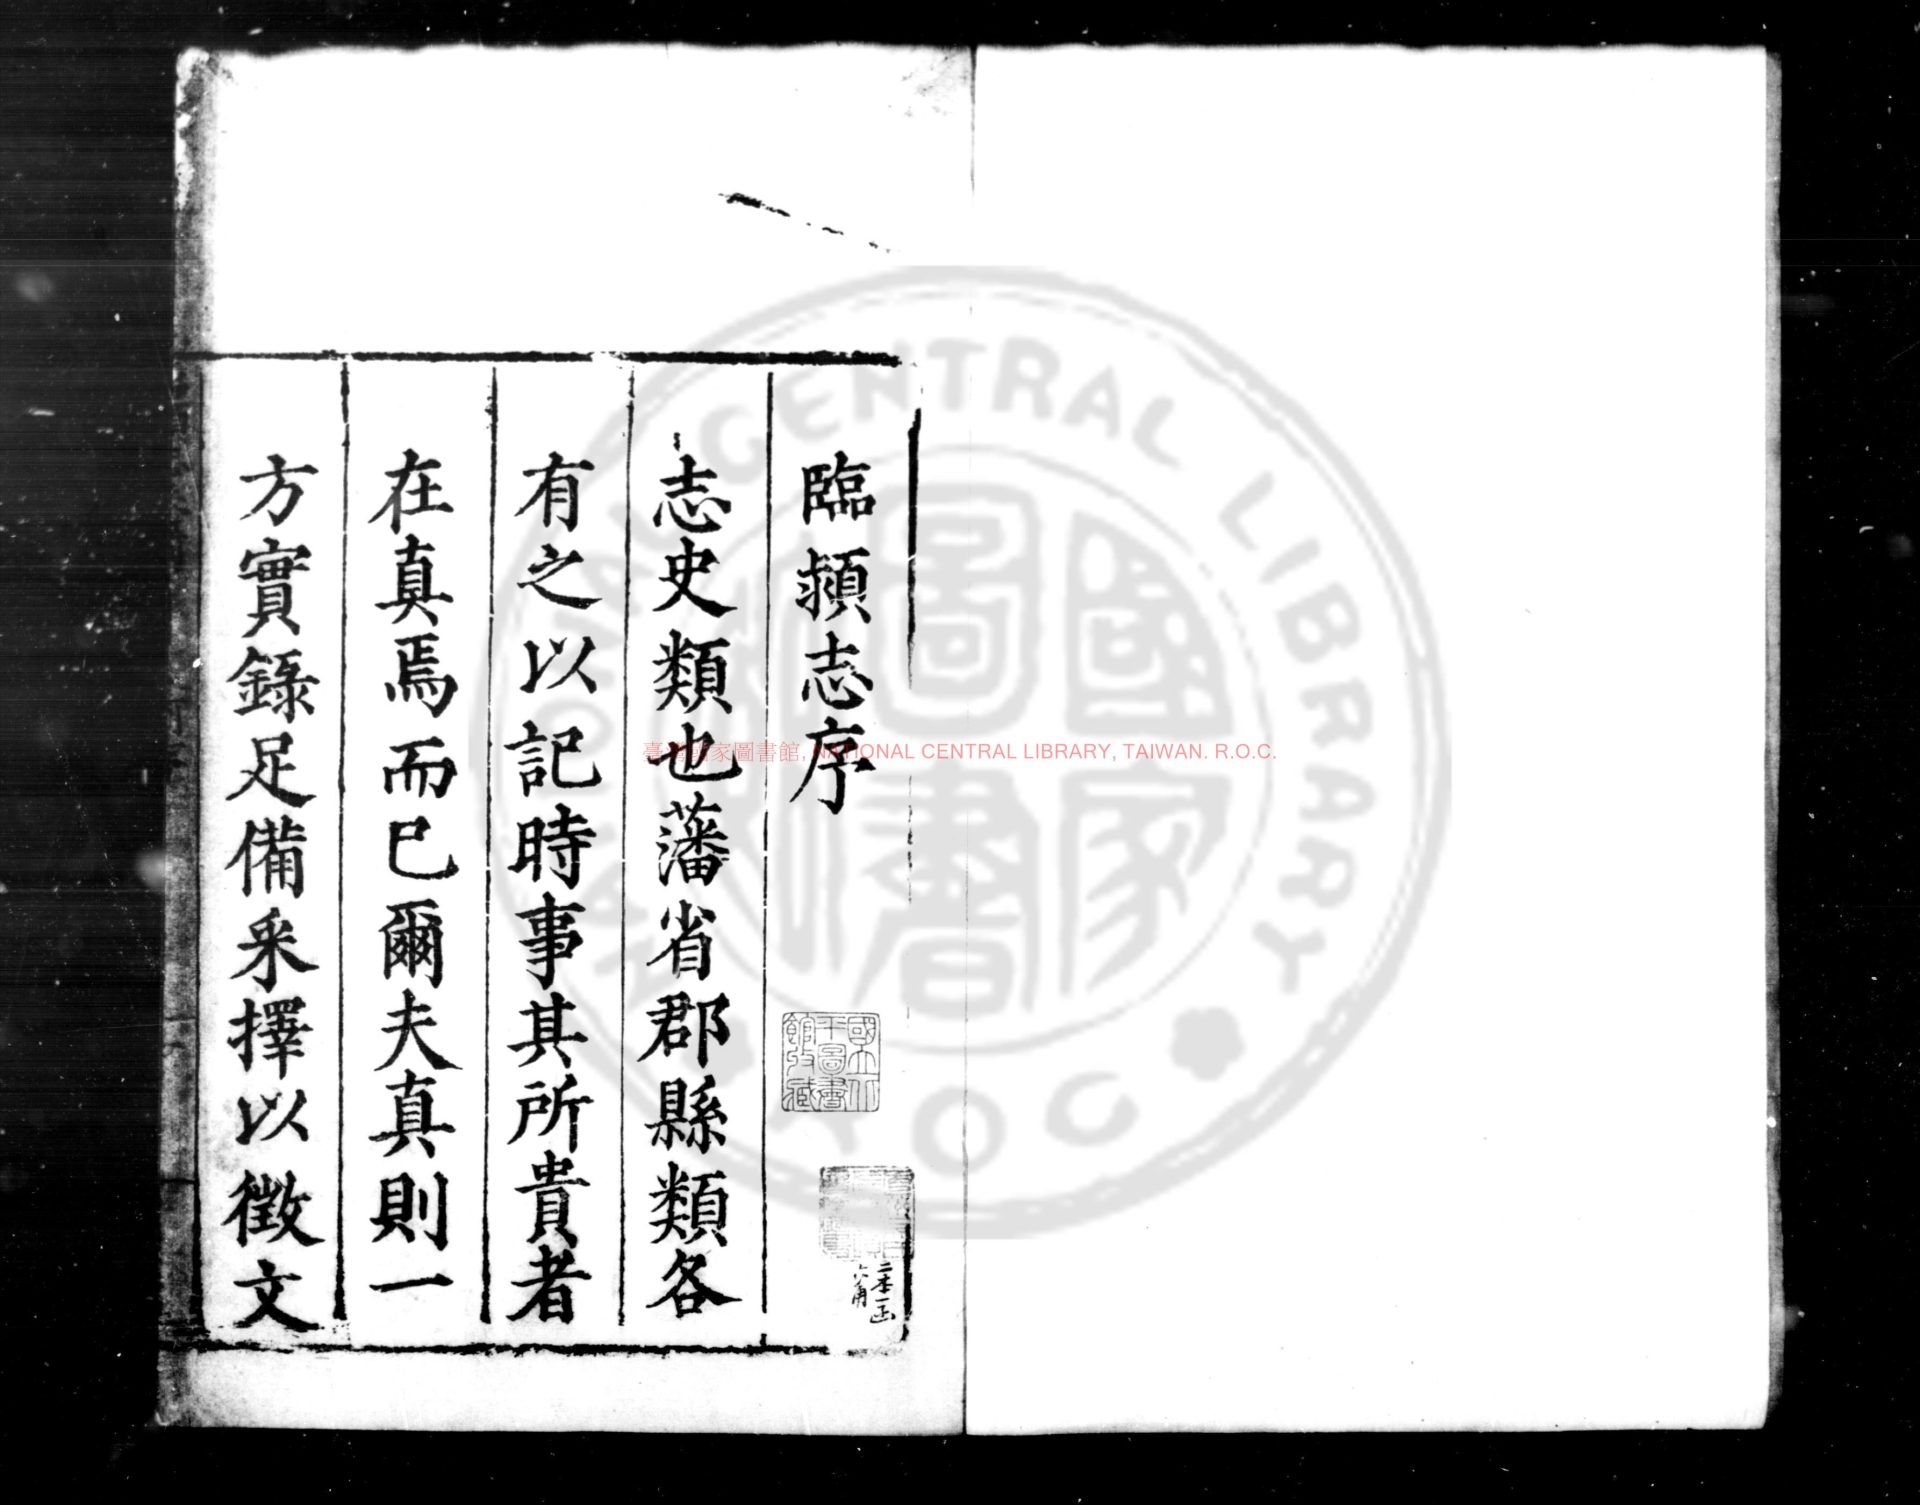 臨潁志序
志史類也藩省郡縣類各
有之以記時事其所貴者
在真焉而已爾夫真則一
方實錄足備采擇以徵文
國立北平圖書館收藏
二本一函
臺灣國家圖書館, NATIONAL CENTRAL LIBRARY, TAIWAN. R.O.C.
NATIONAL CENTRAL LIBRARY R.O.C.
國家圖書